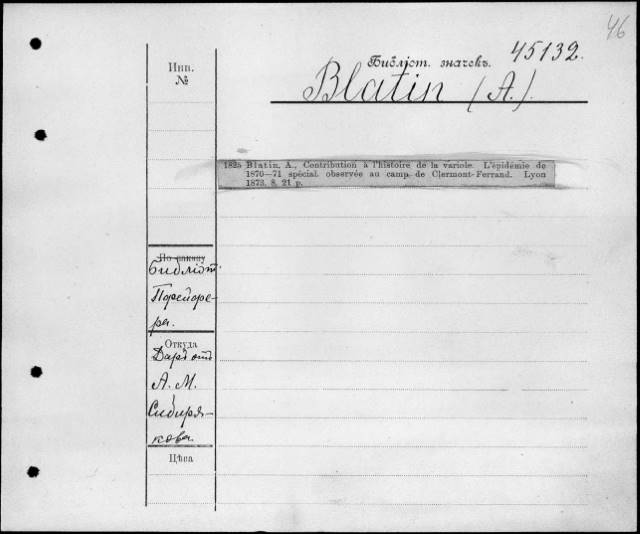 46
Инв.
№
Библіот. значекъ. 45132.
Blatin (A.).
1825 Blatin, A., Contribution à l'histoire de la variole. L'épidémie de
1870—71 spécial. observée au camp de Clermont-Ferrand. Lyon
1873. 8. 21 p.
По какому
библіот.
Порейоре-
ра.
Откуда
Даръ отъ
А. М.
Сибиря-
кова.
Цѣна